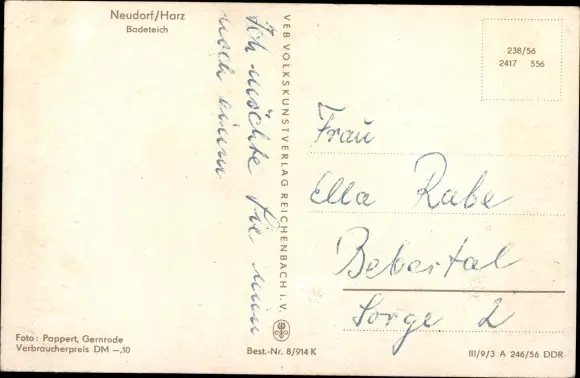 Neudorf/Harz
Badeteich
Ich möchte Sie nun
noch einm
VEB VOLKSKUNSTVERLAG REICHENBACH i. V.
238/56
2417 556
Frau
Ella Rabe
Bebertal
Sorge 2
Foto: Pappert, Gernrode
Verbraucherpreis DM –,10
Best.-Nr. 8/914 K
III/9/3 A 246/56 DDR